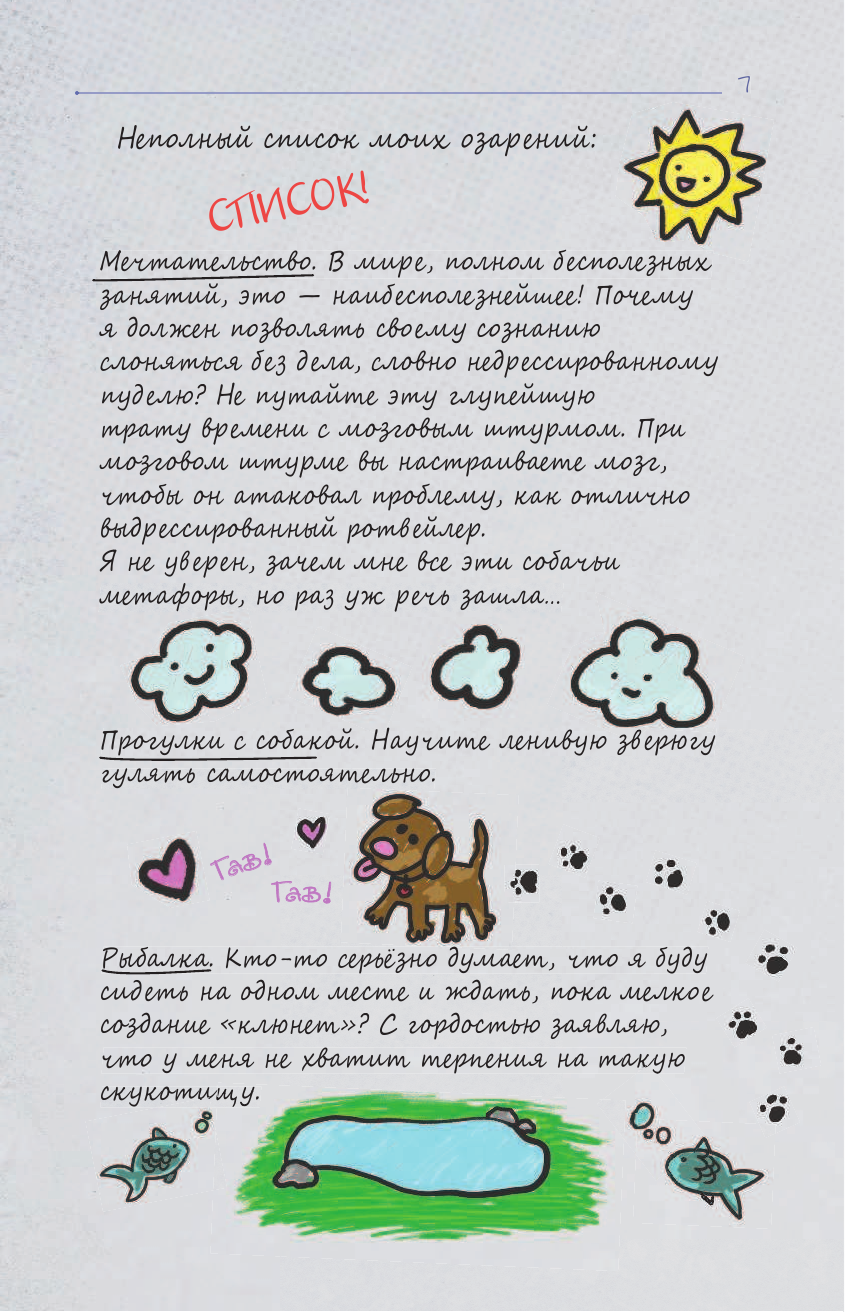 7
Неполный список моих озарений:
СПИСОК!
Мечтательство. В мире, полном бесполезных
занятий, это — наибесполезнейшее! Почему
я должен позволять своему сознанию
слоняться без дела, словно недрессированному
пуделю? Не путайте эту глупейшую
трату времени с мозговым штурмом. При
мозговом штурме вы настраиваете мозг,
чтобы он атаковал проблему, как отлично
выдрессированный ротвейлер.
Я не уверен, зачем мне все эти собачьи
метафоры, но раз уж речь зашла...
Прогулки с собакой. Научите ленивую зверюгу
гулять самостоятельно.
Гав!
Гав!
Рыбалка. Кто-то серьёзно думает, что я буду
сидеть на одном месте и ждать, пока мелкое
создание «клюнет»? С гордостью заявляю,
что у меня не хватит терпения на такую
скукотищу.